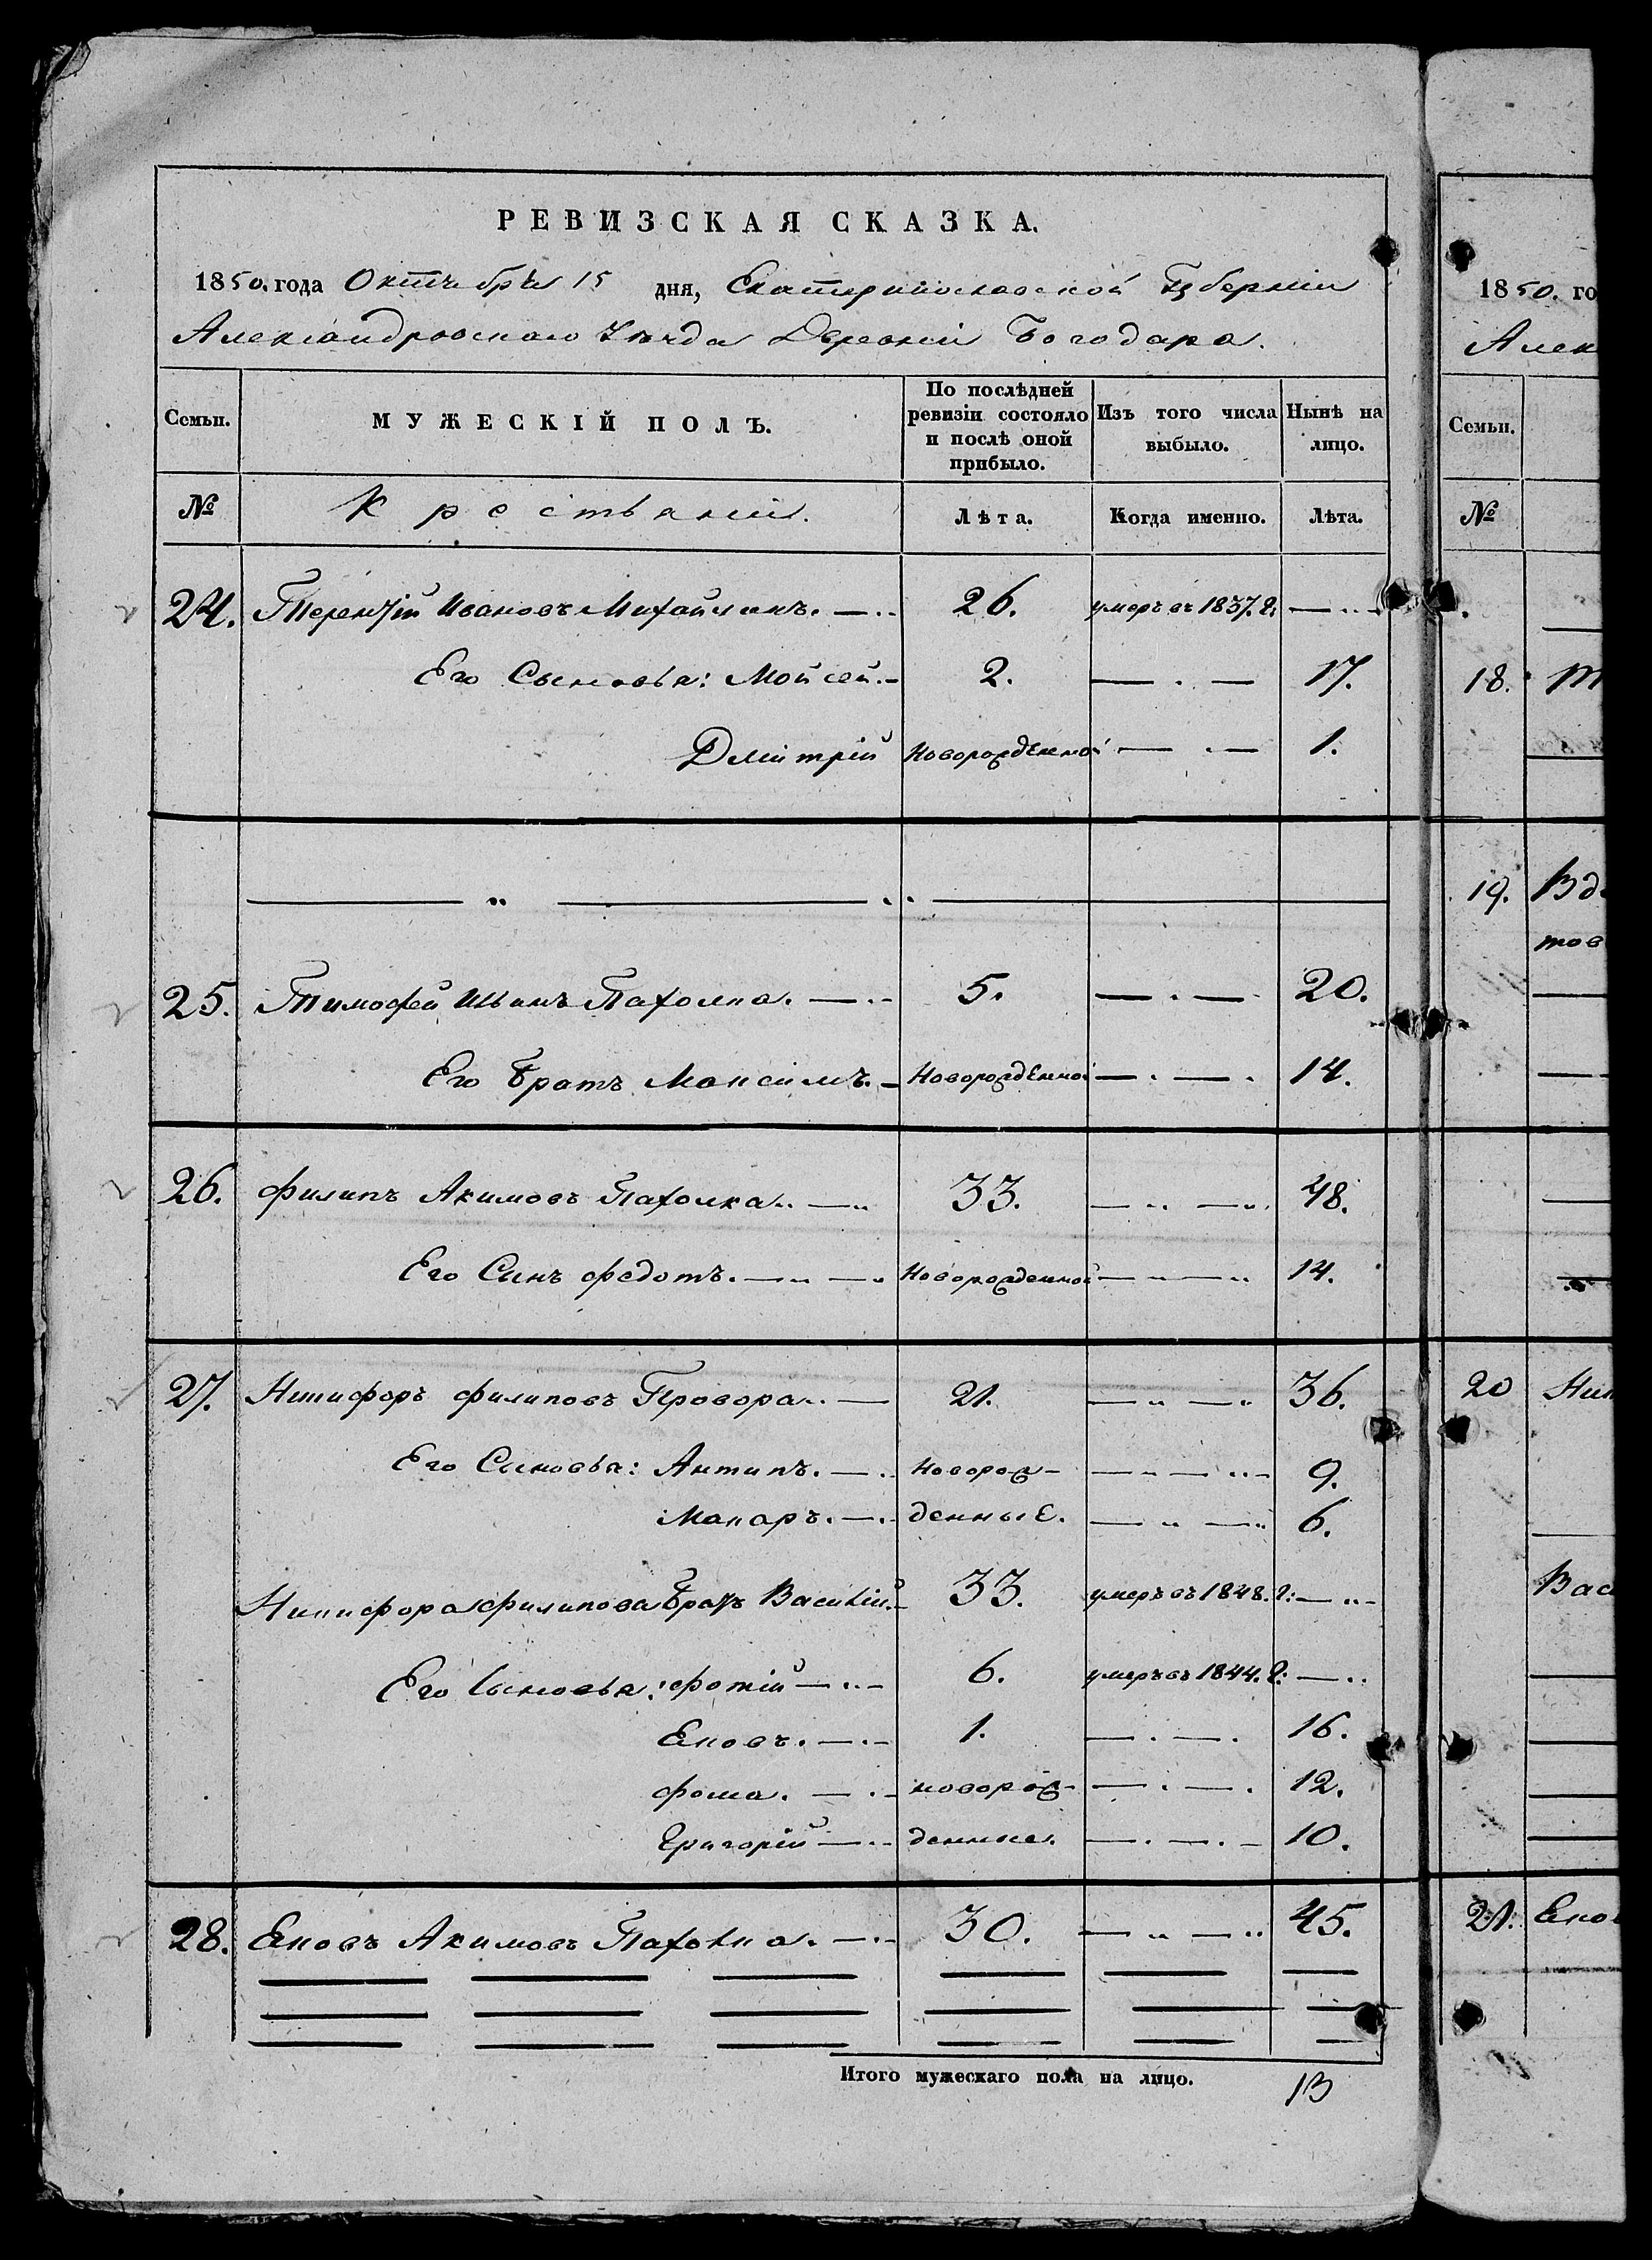 РЕВИЗСКАЯ СКАЗКА.
1850. года Октября 15 дня, Екатеринославской Губерніи
Александровскаго Уѣзда Деревни Богодара.
Семьи. МУЖЕСКІЙ ПОЛЪ. По послѣдней ревизіи состояло и послѣ оной прибыло. Изъ того числа выбыло. Нынѣ на лицо.
№ Крестьяніи. Лѣта. Когда именно. Лѣта.
24. Терентій Ивановъ Михайликъ. 26. умеръ въ 1837. г.
Его Сыновья: Мойсей. 2. 17.
Дмитрій Новорожденной 1.
25. Тимофей Ильинъ Пахолка. 5. 20.
Его Братъ Максимъ. Новорожденной 14.
26. Филипъ Акимовъ Пахолка. 33. 48.
Его Сынъ Федотъ. Новорожденной 14.
27. Никифоръ Филиповъ Провора. 21. 36.
Его Сыновья: Антипъ. Новорож- 9.
Макаръ. денные. 6.
Никифора Филипова Братъ Василій. 33. умеръ въ 1848. г:
Его Сыновья: Фотій 6. умеръ въ 1844. г:
Яковъ. 1. 16.
Фома. новорож- 12.
Григорій денные. 10.
28. Яковъ Акимовъ Пахолка. 30. 45.
Итого мужескаго пола на лицо. 13
1850. го
Алек
Семьи.
№
18.
19. Вдо
тов
20 Ник
Васи
21. Яков